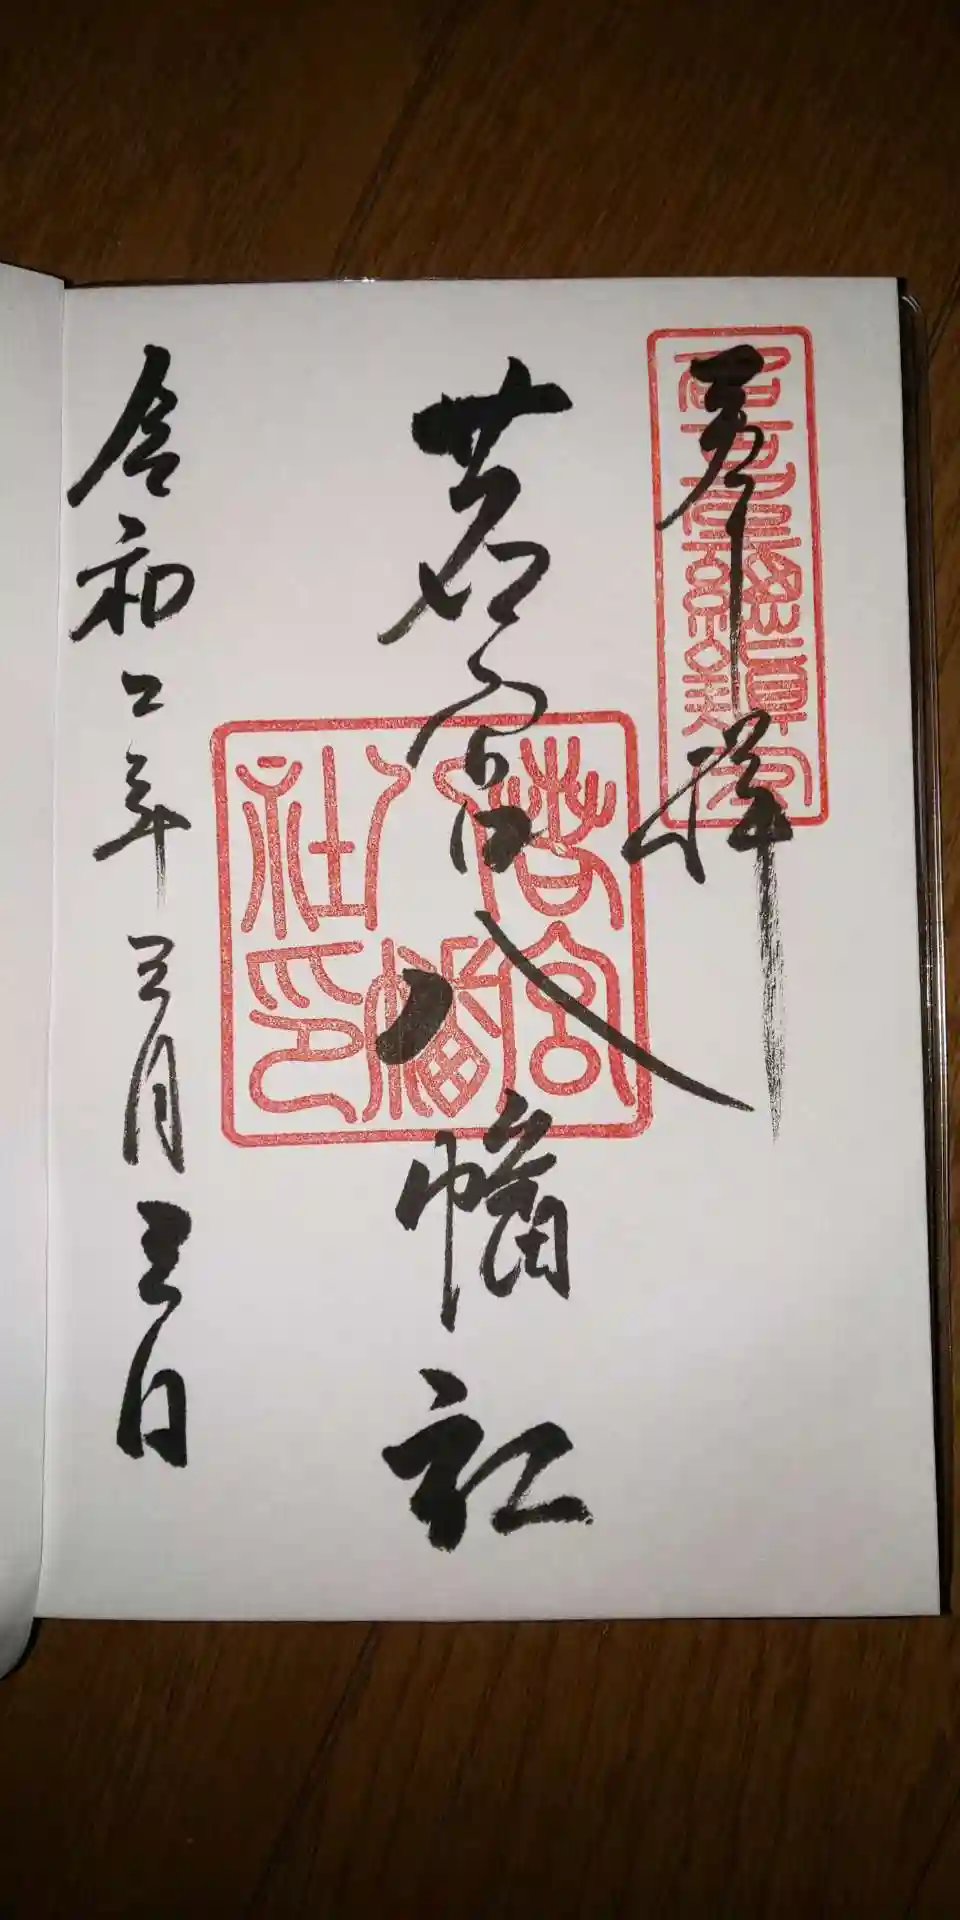 奉拝
若宮八幡社
令和二年三月三日
若宮八幡社印